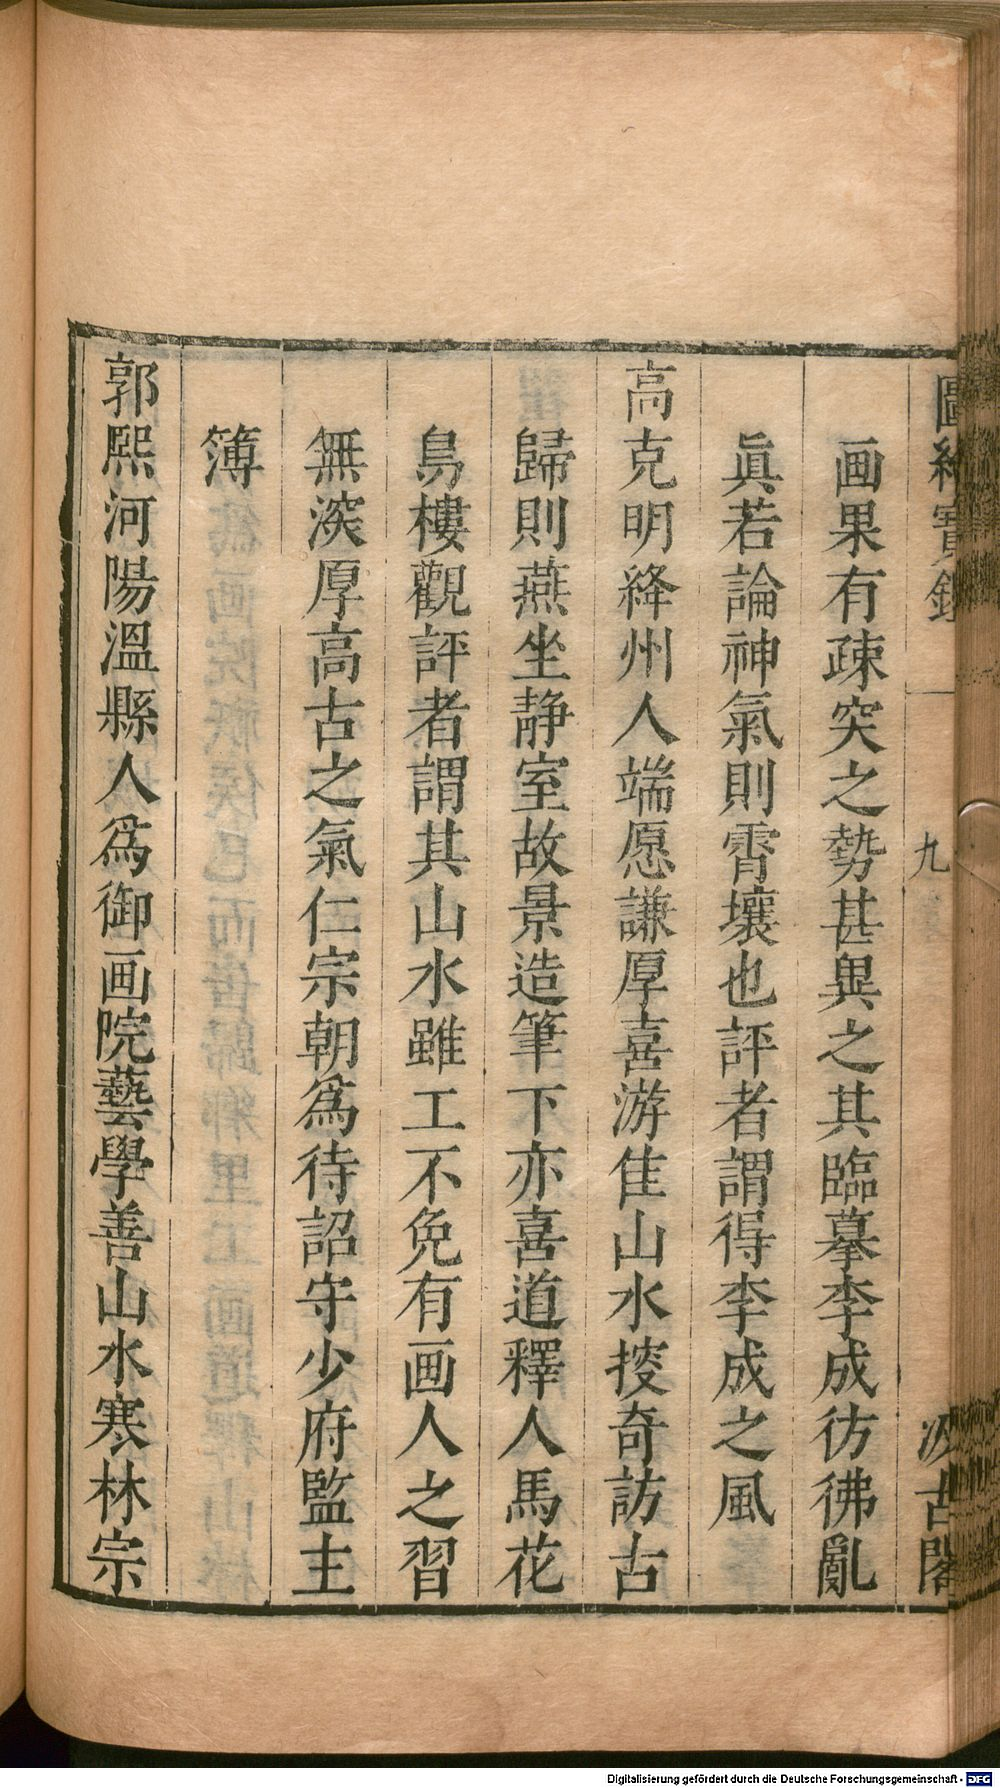 圖繪寶鑑 九 汲古閣
画果有疎突之勢甚異之其臨摹李成彷彿亂
眞若論神氣則霄壤也評者謂得李成之風
高克明絳州人端愿謙厚喜游佳山水搜奇訪古
歸則燕坐静室故景造筆下亦喜道釋人馬花
鳥樓觀評者謂其山水雖工不免有画人之習
無深厚高古之氣仁宗朝爲待詔守少府監主
簿
郭熙河陽溫縣人爲御画院藝學善山水寒林宗
Digitalisierung gefördert durch die Deutsche Forschungsgemeinschaft - DFG